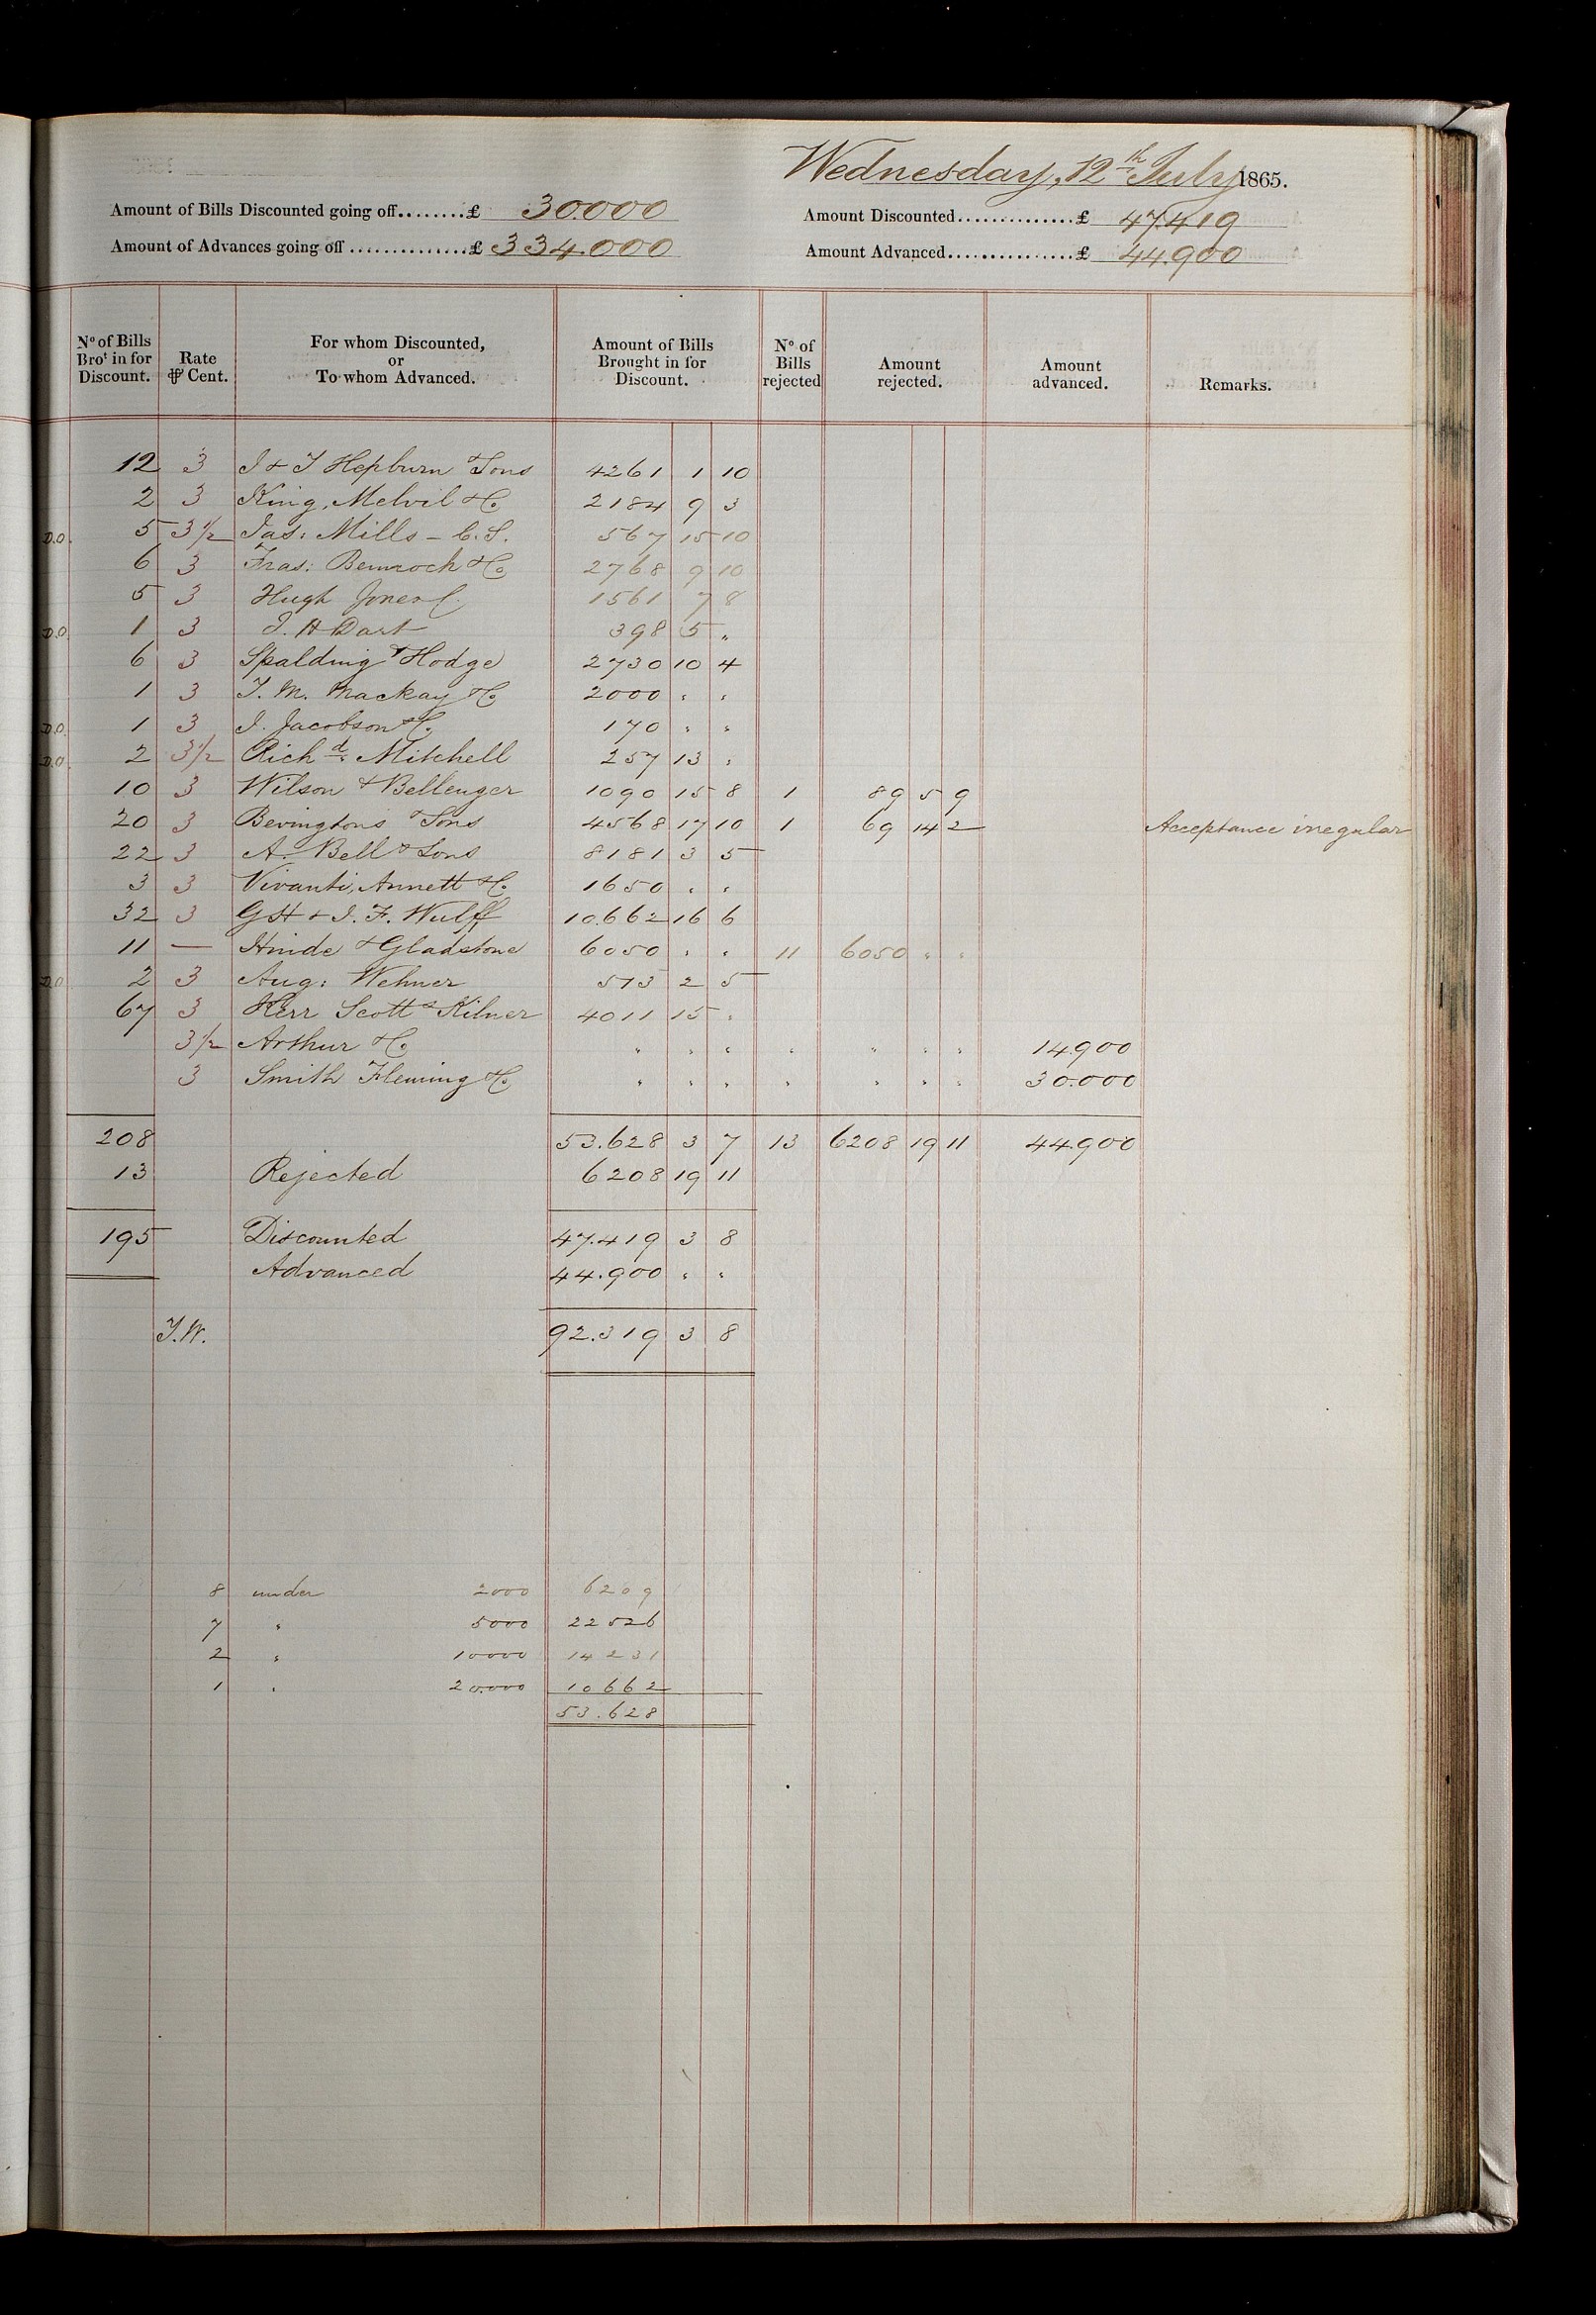 Wednesday, 12th July 1865.
Amount of Bills Discounted going off........£ 30.000 Amount Discounted..............£ 47.419
Amount of Advances going off..............£ 334.000 Amount Advanced................£ 44.900
No of Bills Brot in for Discount. Rate ⅌ Cent. For whom Discounted, or To whom Advanced. Amount of Bills Brought in for Discount. No of Bills rejected Amount rejected. Amount advanced. Remarks.
12 3 J & T Hepburn & Sons 4261 1 10
2 3 King, Melvil & Co 2184 9 3
D.O. 5 3½ Jas: Mills - C.S. 567 15 10
6 3 Fras: & Co 2768 9 10
5 3 Hugh Jones 1561 7 8
D.O. 1 3 J. H Dart 398 5 "
6 3 Spalding & Hodge 2730 10 4
1 3 T. M. Mackay & Co 2000 " "
D.O. 1 3 J. Jacobson & Co. 170 " "
D.O. 2 3½ Richd. Mitchell 257 13 "
10 3 Wilson & Bellenger 1090 15 8 1 89 5 9
20 3 Bevingtons & Sons 4568 17 10 1 69 14 2 Acceptance irregular
22 3 A. Bell & Sons 8181 3 5
3 3 Vivanti, Annett & Co. 1650 " "
32 3 G H & J. F. Wulff 10.662 16 6
11 — Hinde & Gladstone 6050 " " 11 6050 " "
D.O 2 3 Aug: Wehner 513 2 5
67 3 Kerr Scott & Kilner 4011 15 "
3½ Arthur & Co " " " " " " " 14.900
3 Smith Fleming & Co " " " " " " " 30.000
208 53.628 3 7 13 6208 19 11 44.900
13 Rejected 6208 19 11
195 Discounted 47.419 3 8
Advanced 44.900 " "
T.W. 92.319 3 8
8 under 2000 6209
7 " 5000 22526
2 " 10000 14231
1 " 20.000 10662
53.628